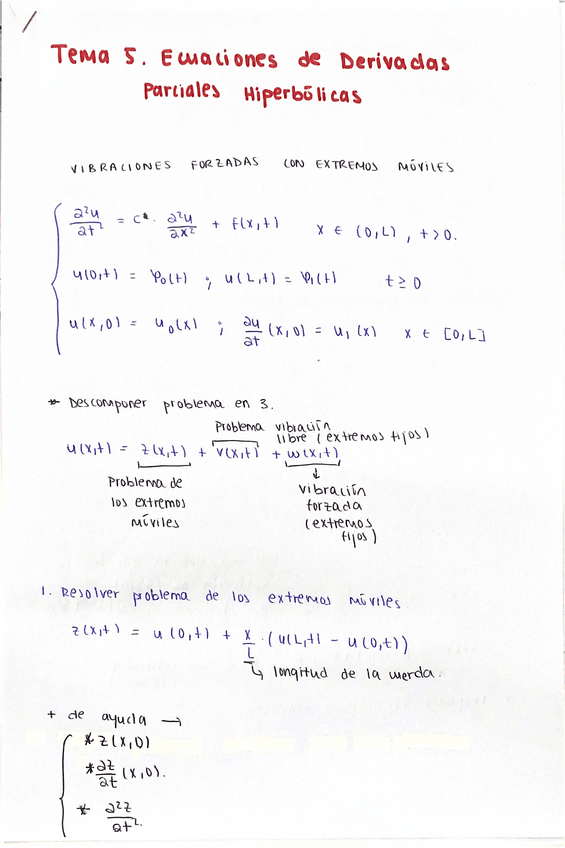 Tema 5. Ecuaciones de Derivadas
Parciales Hiperbólicas
VIBRACIONES FORZADAS CON EXTREMOS MÓVILES
∂²u/∂t² = c². ∂²u/∂x² + f(x,t) x ∈ (0,L), t>0.
u(0,t) = φ₀(t) ; u(L,t) = φ₁(t) t ≥ 0
u(x,0) = u₀(x) ; ∂u/∂t (x,0) = u₁(x) x ∈ [0,L]
* Descomponer problema en 3.
Problema vibración
libre (extremos fijos)
u(x,t) = z(x,t) + v(x,t) + w(x,t)
Problema de
los extremos
móviles
↓
vibración
forzada
(extremos
fijos)
1. Resolver problema de los extremos móviles
z(x,t) = u(0,t) + x/L · (u(L,t) - u(0,t))
↳ longitud de la cuerda.
+ de ayuda →
* z(x,0)
* ∂z/∂t (x,0).
* ∂²z/∂t².